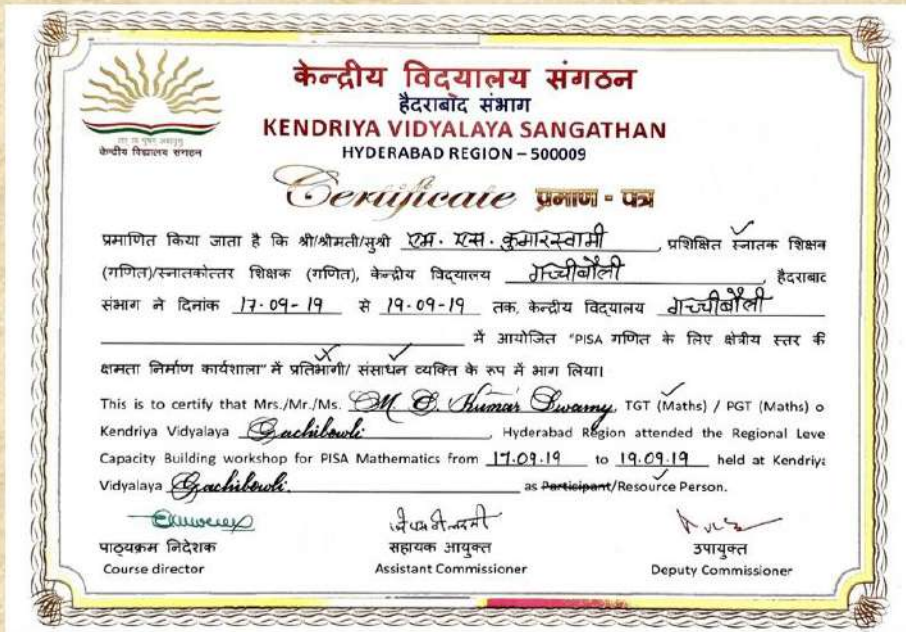 केन्द्रीय विद्यालय संगठन
हैदराबाद संभाग
KENDRIYA VIDYALAYA SANGATHAN
HYDERABAD REGION – 500009
केन्द्रीय विद्यालय संगठन
Certificate प्रमाण - पत्र
प्रमाणित किया जाता है कि श्री/श्रीमती/सुश्री एम. एस. कुमारस्वामी, प्रशिक्षित स्नातक शिक्षक
(गणित)/स्नातकोत्तर शिक्षक (गणित), केन्द्रीय विद्यालय गच्चीबौली, हैदराबाद
संभाग ने दिनांक 17-09-19 से 19-09-19 तक, केन्द्रीय विद्यालय गच्चीबौली
में आयोजित "PISA गणित के लिए क्षेत्रीय स्तर की
क्षमता निर्माण कार्यशाला" में प्रतिभागी/ संसाधन व्यक्ति के रूप में भाग लिया।
This is to certify that Mrs./Mr./Ms. M. S. Kumar Swamy, TGT (Maths) / PGT (Maths) o
Kendriya Vidyalaya Gachibowli, Hyderabad Region attended the Regional Leve
Capacity Building workshop for PISA Mathematics from 17.09.19 to 19.09.19 held at Kendriya
Vidyalaya Gachibowli. as Participant/Resource Person.
पाठ्यक्रम निदेशक सहायक आयुक्त उपायुक्त
Course director Assistant Commissioner Deputy Commissioner